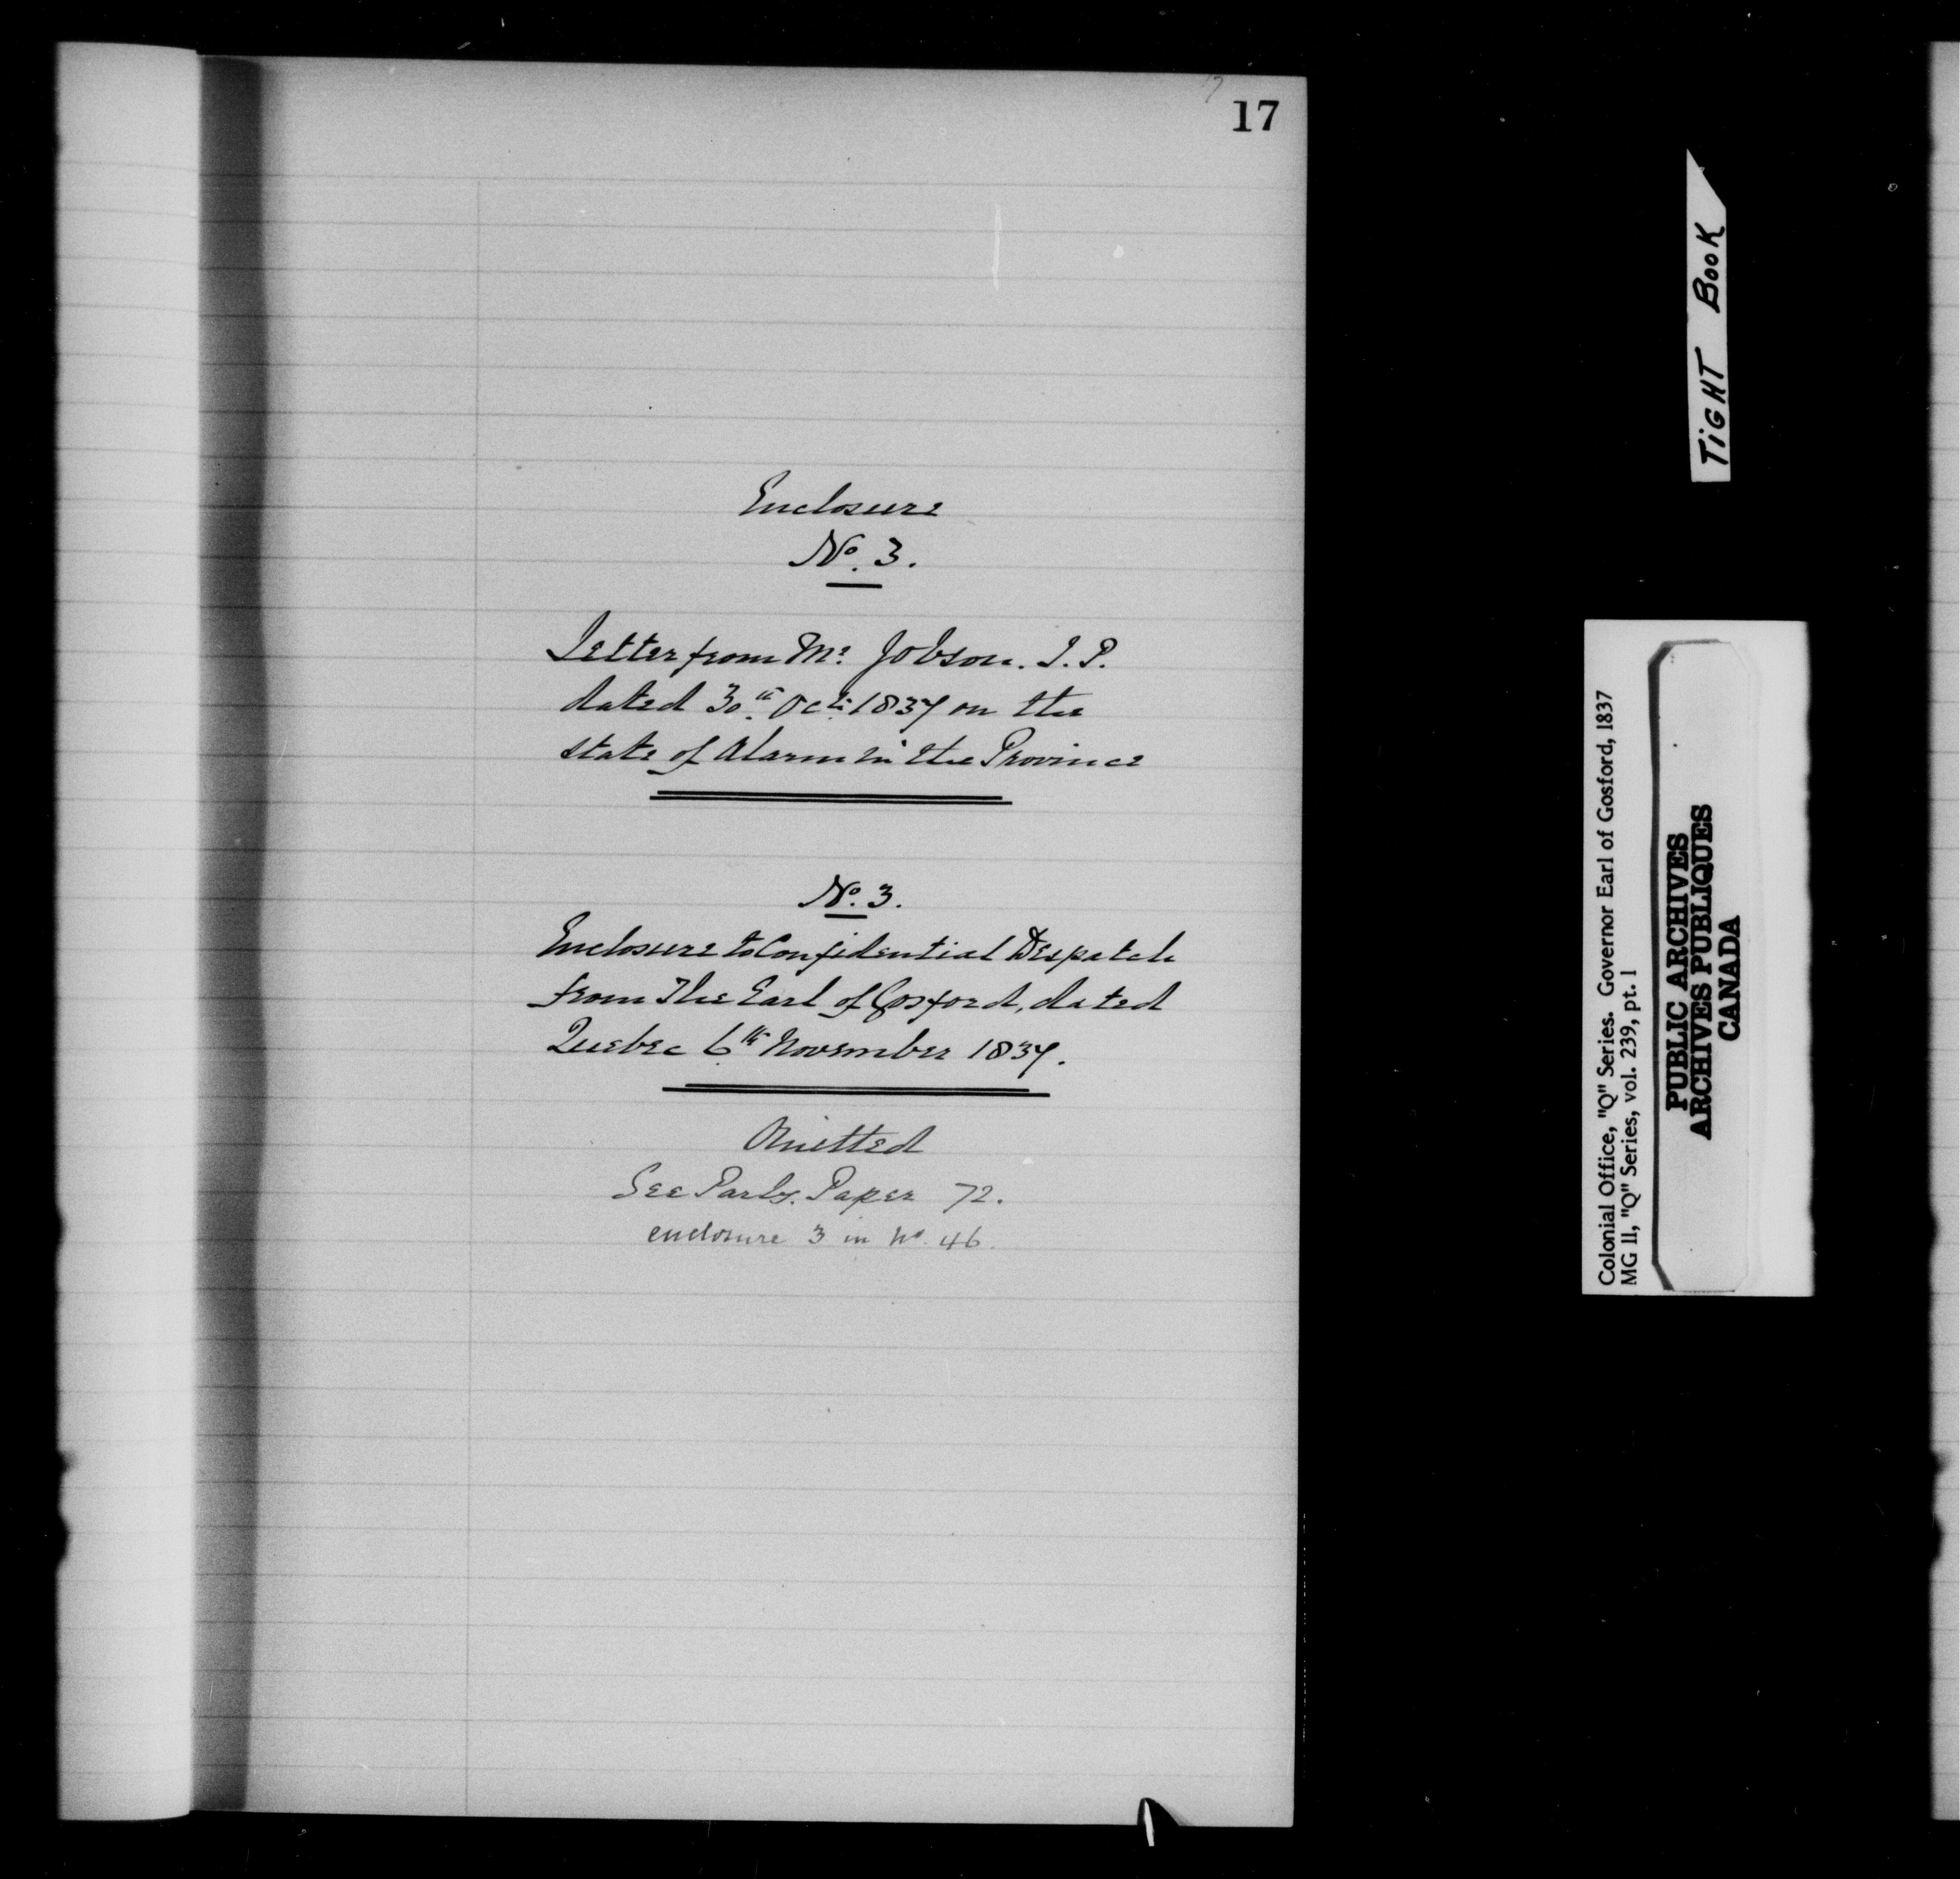 17
Enclosure
No. 3.
Letter from Mr. Jobson. J. P.
dated 30th Oct. 1837 on the
state of Alarm in the Province
No. 3.
Enclosure to Confidential Despatch
from The Earl of Gosford, dated
Quebec 6th November 1837.
Omitted
See Parly. Paper 72.
enclosure 3 in No. 46.
TiGHT BooK
Colonial Office, "Q" Series. Governor Earl of Gosford, 1837
MG 11, "Q" Series, vol. 239, pt. 1
PUBLIC ARCHIVES
ARCHIVES PUBLIQUES
CANADA